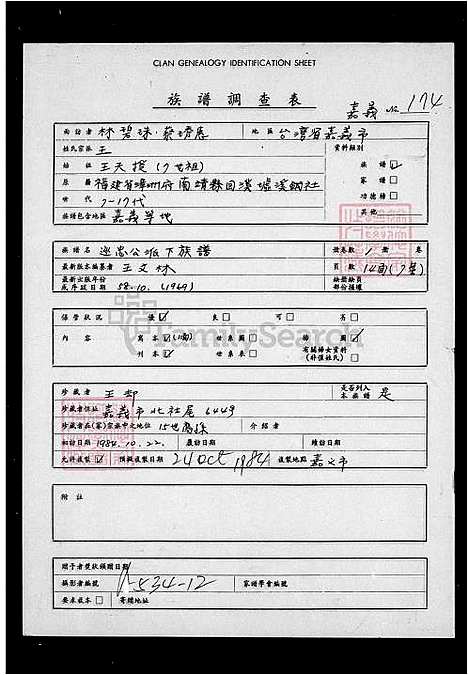 CLAN GENEALOGY IDENTIFICATION SHEET
族譜調查表 嘉義 No 174
面訪者 林碧珠、蔡 地區 台灣省嘉義市
姓氏宗派 王 資料類別
王天授(7世祖) 族譜 ☑
原籍 福建省漳州府南靖縣 社 家譜 □
世代 7-17代 功德榜 □
族譜包含地區 嘉義等地 其他
族譜名 忠公派下族譜 譜卷數 1 冊 卷
最新版本編纂者 王文林 頁數
最新出版年份或序跋日期 58.10.(1969) 缺卷缺頁部份損壞
保管狀況 優☑ 良□ 可□ 劣□
內容 寫本☑ 世系表□ 譜圖☑
刊本☑ 世系表□ 有關婦女資料(外僅姓氏)□
珍藏者 王 是否列入本族譜 是
珍藏者住址 嘉義市北社尾6449
珍藏者在(家)宗族中之地位 15世裔孫 介紹者
初訪日期 1984.10.22. 覆訪日期 續訪日期
允許複製☑ 預擬複製日期 24 Oct 1984 複製地點 嘉义市
附註
贈予者獎狀頒贈日期
攝影者編號 534-12 家譜學會編號
要求成本□ 寄贈地址
FamilySearch